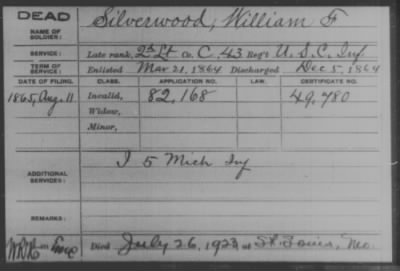 DEAD
NAME OF SOLDIER: Silverwood, William F
SERVICE: Late rank, 2d Lt Co. C, 43 Reg't U.S.C. Inf
TERM OF SERVICE: Enlisted Mar 21, 1864 Discharged Dec 5, 1864
DATE OF FILING. CLASS. APPLICATION NO. LAW. CERTIFICATE NO.
1865, Aug. 11 Invalid, 82,168 49,780
Widow,
Minor,
ADDITIONAL SERVICES: I 5 Mich Inf
REMARKS:
Died July 26, 1923 at St. Louis, Mo.